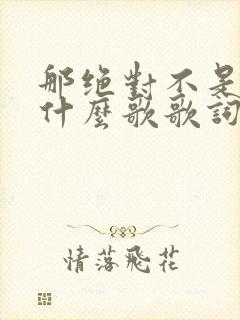 那绝對不是
什麼歌歌詞
情落飛花